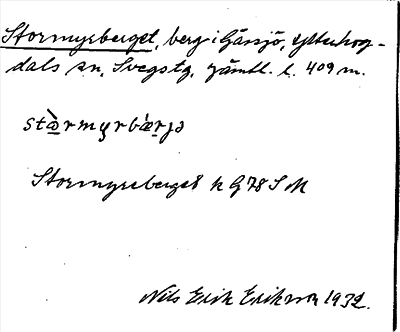 Stormyrberget, berg i Gåssjö, Ytterhog-
dals sn, Svegs tg, Jämtl. l. 409 m.
stòrmyrbær̀jə
Stormyrberget k G 78 S M
Nils Erik Eriksson 1932.